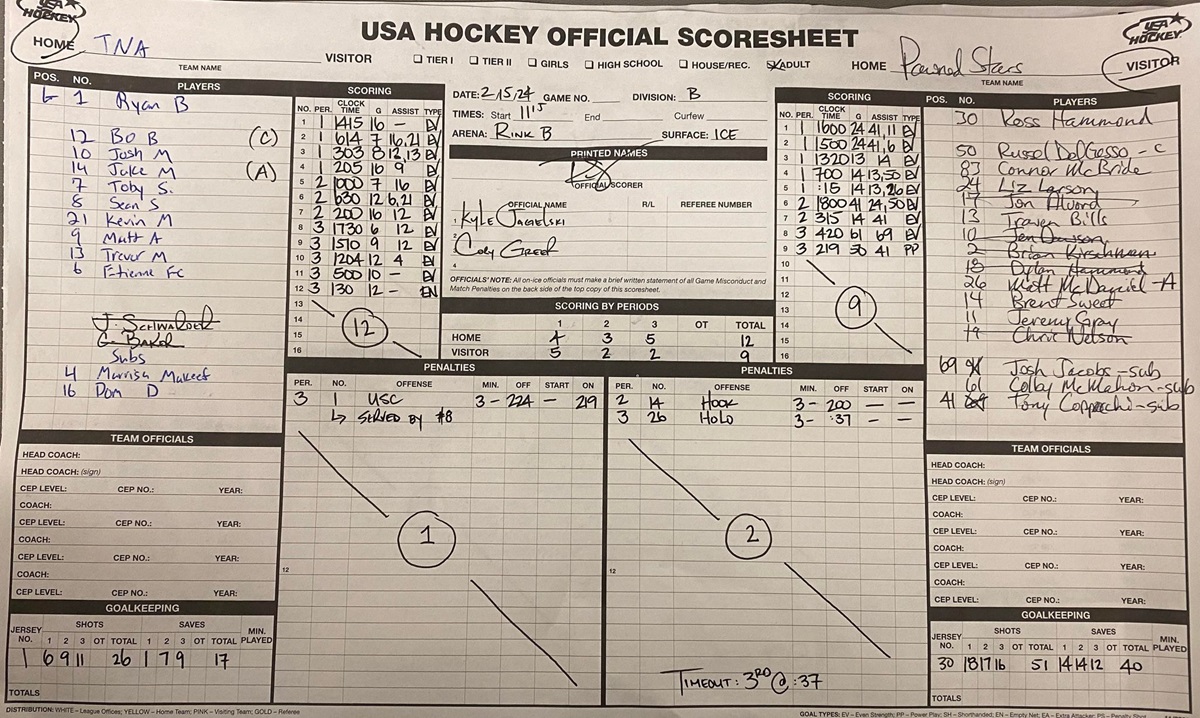 USA HOCKEY
USA HOCKEY OFFICIAL SCORESHEET
USA HOCKEY
HOME TNA VISITOR
TEAM NAME
TIER I TIER II GIRLS HIGH SCHOOL HOUSE/REC. ADULT
HOME Pawned Stars VISITOR
TEAM NAME
POS. NO. PLAYERS
G 1 Ryan B
12 Bo B (C)
10 Josh M
14 Jake M (A)
7 Toby S.
8 Sean S
21 Kevin M
9 Matt A
13 Trevor M
6 Etienne FC
J. SCHWARDER
G. BAKER
Subs
4 Marrish Makeef
16 Dom D
TEAM OFFICIALS
HEAD COACH:
HEAD COACH: (sign)
CEP LEVEL: CEP NO.: YEAR:
COACH:
CEP LEVEL: CEP NO.: YEAR:
COACH:
CEP LEVEL: CEP NO.: YEAR:
COACH:
CEP LEVEL: CEP NO.: YEAR:
GOALKEEPING
JERSEY NO. SHOTS SAVES MIN. PLAYED
1 2 3 OT TOTAL 1 2 3 OT TOTAL
1 6 9 11 26 1 7 9 17
TOTALS
SCORING
NO. PER. CLOCK TIME G ASSIST TYPE
1 1 1415 16 - EV
2 1 614 7 16,21 EV
3 1 303 8 12,13 EV
4 1 205 16 9 EV
5 2 1000 7 16 EV
6 2 630 12 6,21 EV
7 2 200 16 12 EV
8 3 1730 6 12 EV
9 3 1510 9 12 EV
10 3 1204 12 4 EV
11 3 500 10 - EV
12 3 130 12 - EN
13
14
15
16
12
DATE: 2/15/24 GAME NO. DIVISION: B
TIMES: Start 1115 End Curfew
ARENA: RINK B SURFACE: ICE
PRINTED NAMES
OFFICIAL SCORER
OFFICIAL NAME R/L REFEREE NUMBER
1 KYLE JAGIELSKI
2
Cody Greef
4
OFFICIALS' NOTE: All on-ice officials must make a brief written statement of all Game Misconduct and
Match Penalties on the back side of the top copy of this scoresheet.
SCORING BY PERIODS
1 2 3 OT TOTAL
HOME 4 3 5 12
VISITOR 5 2 2 9
SCORING
NO. PER. CLOCK TIME G ASSIST TYPE
1 1 1600 24 41,11 EV
2 1 1500 24 41,6 EV
3 1 1320 13 14 EV
4 1 700 14 13,50 EV
5 1 :15 14 13,26 EV
6 2 1800 41 24,50 EV
7 2 315 14 41 EV
8 3 420 61 69 EV
9 3 219 50 41 PP
10
11
12
13
14
15
16
9
PENALTIES
PER. NO. OFFENSE MIN. OFF START ON
3 1 USC 3- 224 - 219
↳ SERVED BY #8
12
1
PENALTIES
PER. NO. OFFENSE MIN. OFF START ON
2 14 HOOK 3- 200 - -
3 26 HOLD 3- :37 - -
12
2
TIMEOUT: 3RD @ :37
POS. NO. PLAYERS
30 Ross Hammond
50 Russel DalGesso - C
83 Connor McBride
24 Liz Larson
17 Jon Alward
13 Traven Bills
10 Jen Dawson
2 Brian Kirschman
18 Dylan Hammond
26 Matt McDaniel -A
14 Brent Sweet
11 Jeremy Gray
19 Chris Nelson
69 Josh Jacobs -sub
61 Colby McMahon -sub
41 Tony Coppochi -sub
TEAM OFFICIALS
HEAD COACH:
HEAD COACH: (sign)
CEP LEVEL: CEP NO.: YEAR:
COACH:
CEP LEVEL: CEP NO.: YEAR:
COACH:
CEP LEVEL: CEP NO.: YEAR:
COACH:
CEP LEVEL: CEP NO.: YEAR:
GOALKEEPING
JERSEY NO. SHOTS SAVES MIN. PLAYED
1 2 3 OT TOTAL 1 2 3 OT TOTAL
30 18 17 16 51 14 14 12 40
TOTALS
DISTRIBUTION: WHITE – League Offices; YELLOW – Home Team; PINK – Visiting Team; GOLD – Referee
GOAL TYPES: EV – Even Strength; PP – Power Play; SH – Shorthanded; EN – Empty Net; EA – Extra Attacker; PS – Penalty Shot